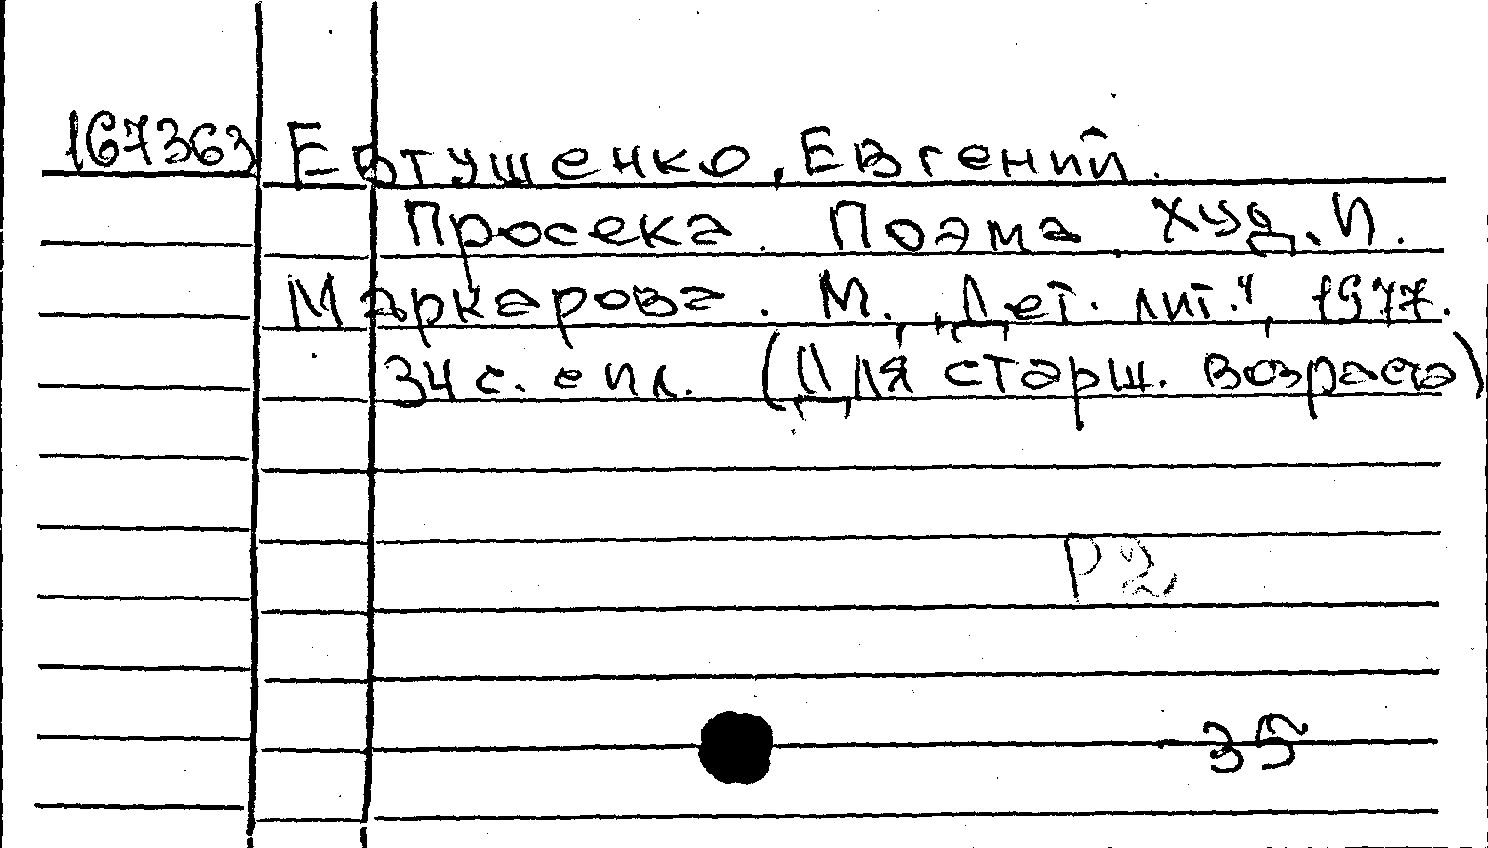 167363 Евтушенко, Евгений.
Просека. Поэма. Худ. И.
Маркарова. М., „Дет. лит.", 1977.
34 с. с ил. (Для старш. возраста)
Р2
35